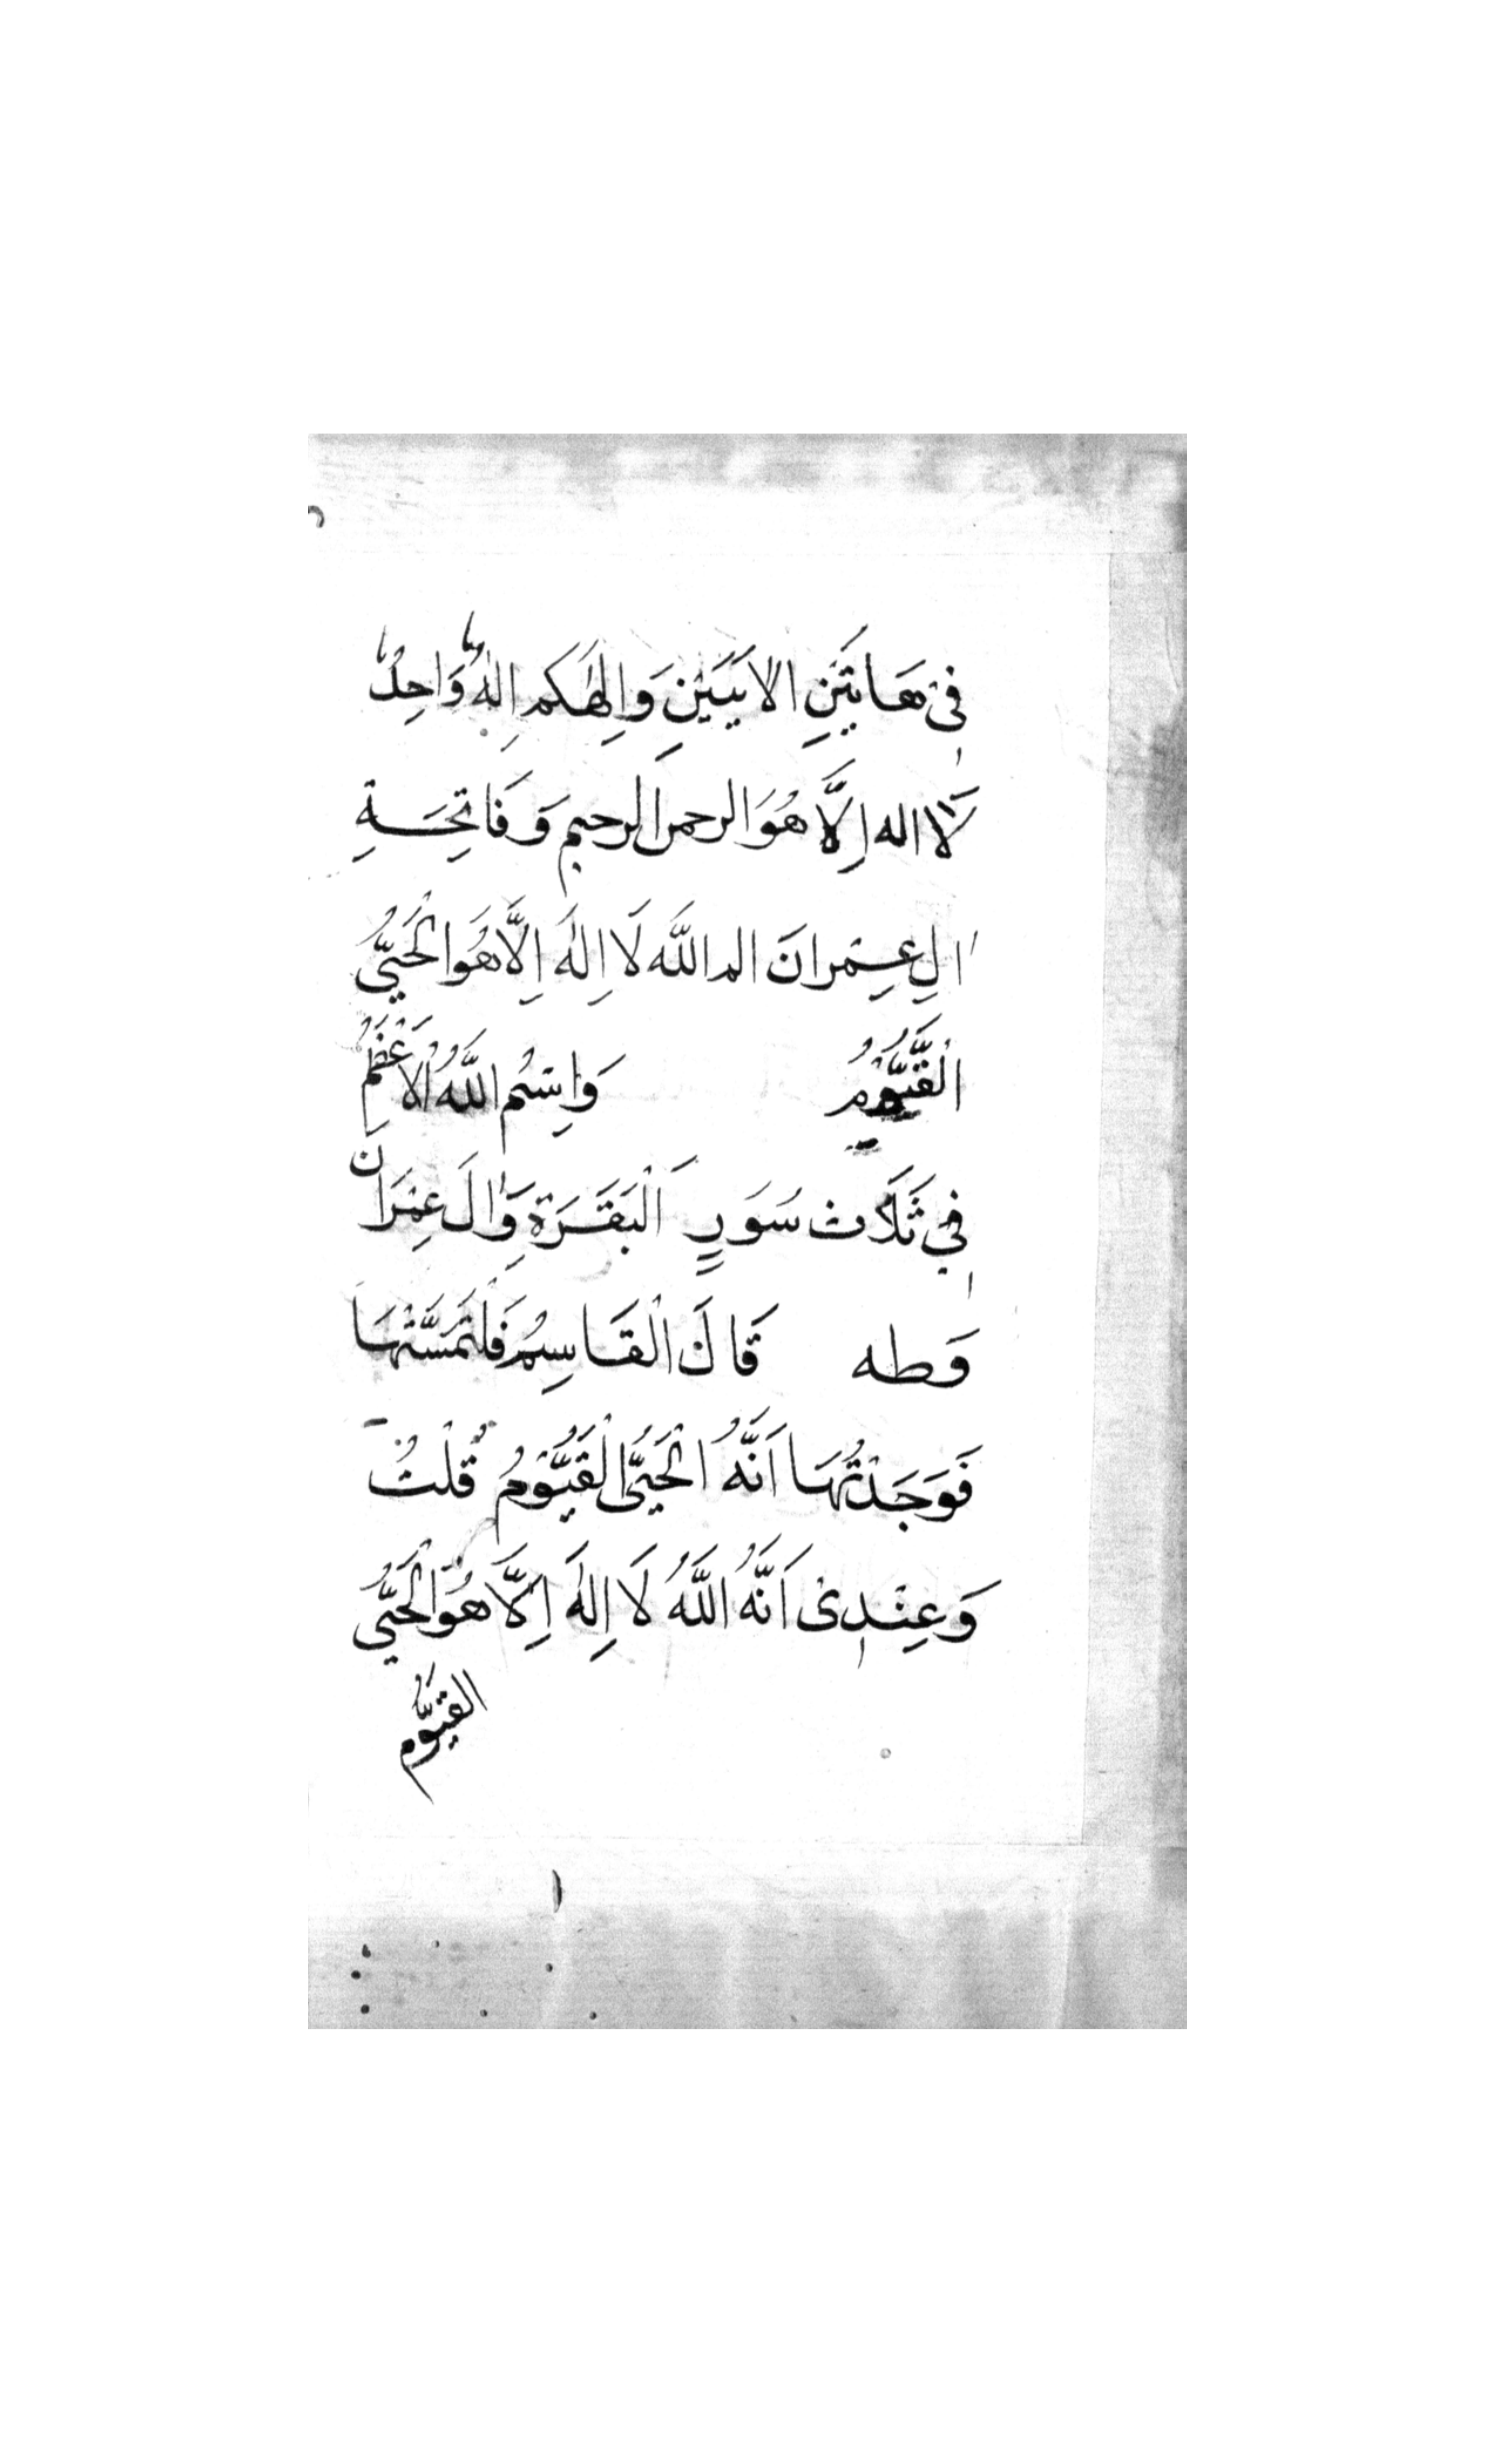 فِىْ هَاتَيْنِ الاٰيَتَيْنِ وَاِلٰهُكم اِلٰهٌ وَاحِدٌ
لَا اله اِلَّا هُوَ الرحمن الرحيم وَفَاتِحَةِ
اٰلِ عِمرانَ الم اللَّه لَا اِلٰهَ اِلَّا هُوَ الْحَىُّ
الْقَيُّوْمُ وَاِسْمُ اللَّهُ الْاَعْظَمُ
فِي ثَلَاث سُوَرٍ اَلْبَقَرَة وَاٰلَ عِمْرَانَ
وَطه قَالَ الْقَاسِمُ فَلتَمَسَّتْهَا
فَوَجَدْتُهَا اَنَّهُ الْحَىُّ الْقَيُّوْمُ قُلْتُ
وَعِنْدِىْ اَنَّهُ اللَّهُ لَا اِلٰهَ اِلَّا هُوَ الْحَىُّ
القيُّوم